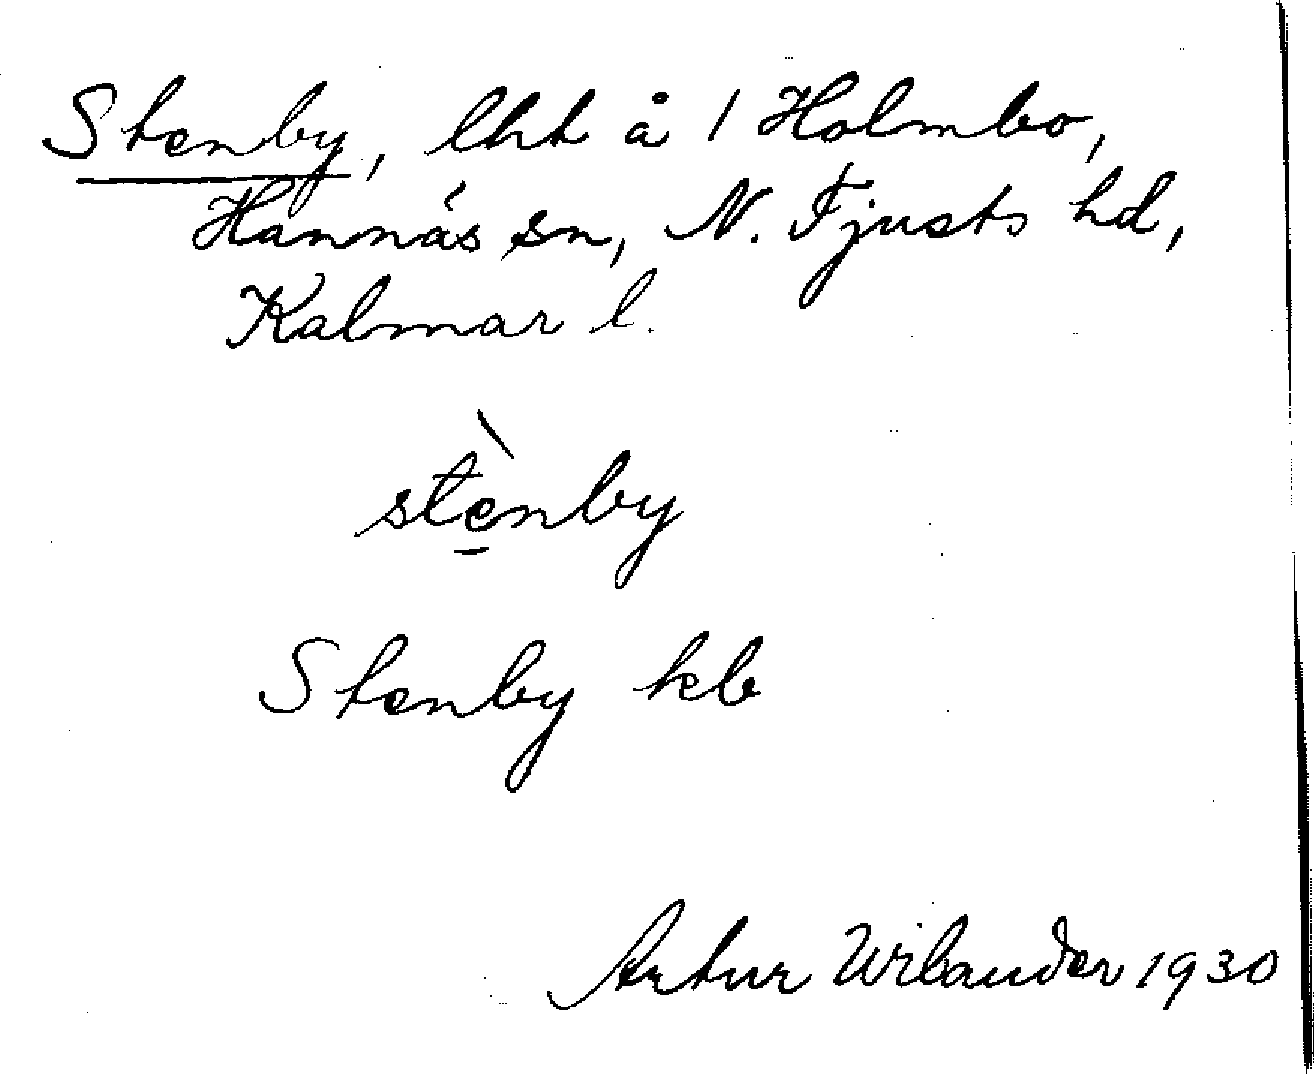 Stenby, lht å 1 Holmbo,
Hannäs sn, N. Tjusts hd,
Kalmar l.
stè̱nby
Stenby kb
Artur Wilander 1930